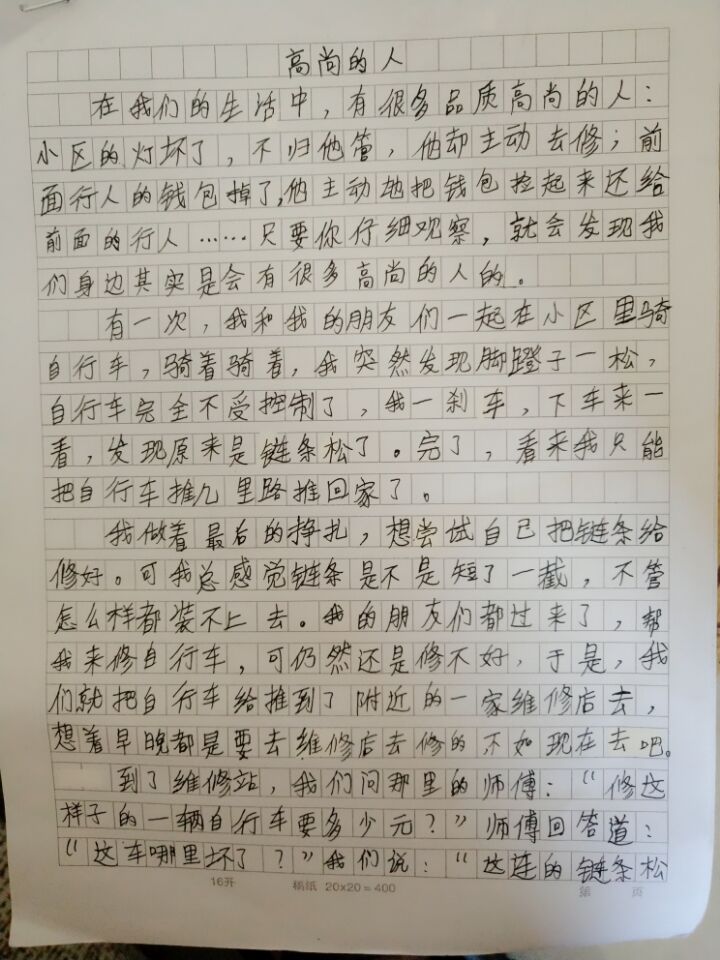 高尚的人
在我们的生活中，有很多品质高尚的人：
小区的灯坏了，不归他管，他却主动去修；前
面行人的钱包掉了，他主动地把钱包捡起来还给
前面的行人……只要你仔细观察，就会发现我
们身边其实是会有很多高尚的人的。
有一次，我和我的朋友们一起在小区里骑
自行车，骑着骑着，我突然发现脚蹬子一松，
自行车完全不受控制了，我一刹车，下车来一
看，发现原来是链条松了。完了，看来我只能
把自行车推几里路推回家了。
我做着最后的挣扎，想尝试自己把链条给
修好。可我总感觉链条是不是短了一截，不管
怎么样都装不上去。我的朋友们都过来了，帮
我来修自行车，可仍然还是修不好，于是，我
们就把自行车给推到了附近的一家维修店去，
想着早晚都是要去维修店去修的不如现在去吧。
到了维修站，我们问那里的师傅：“修这
样子的一辆自行车要多少元？”师傅回答道：
“这车哪里坏了？”我们说：“这连的链条松
16开 稿纸 20×20=400 第 页